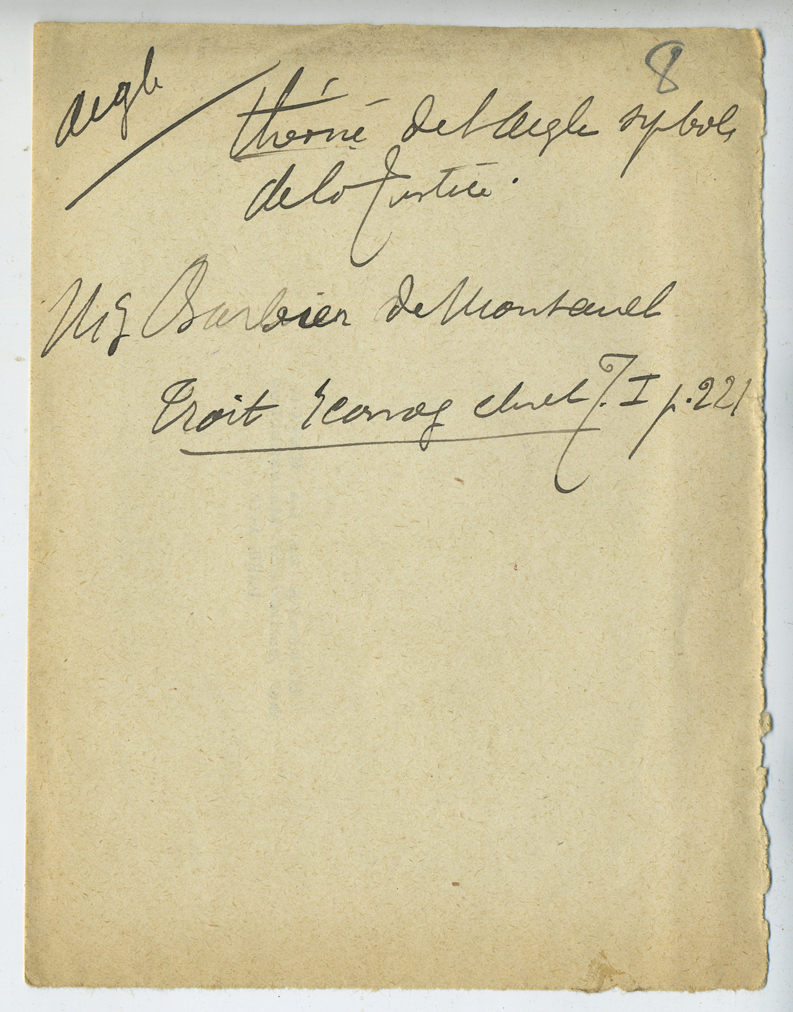 8
Aigle
Thème de l'Aigle symbole
de la Justice.
Mgr Barbier de Montault
Trait Iconog chret T. I p. 221